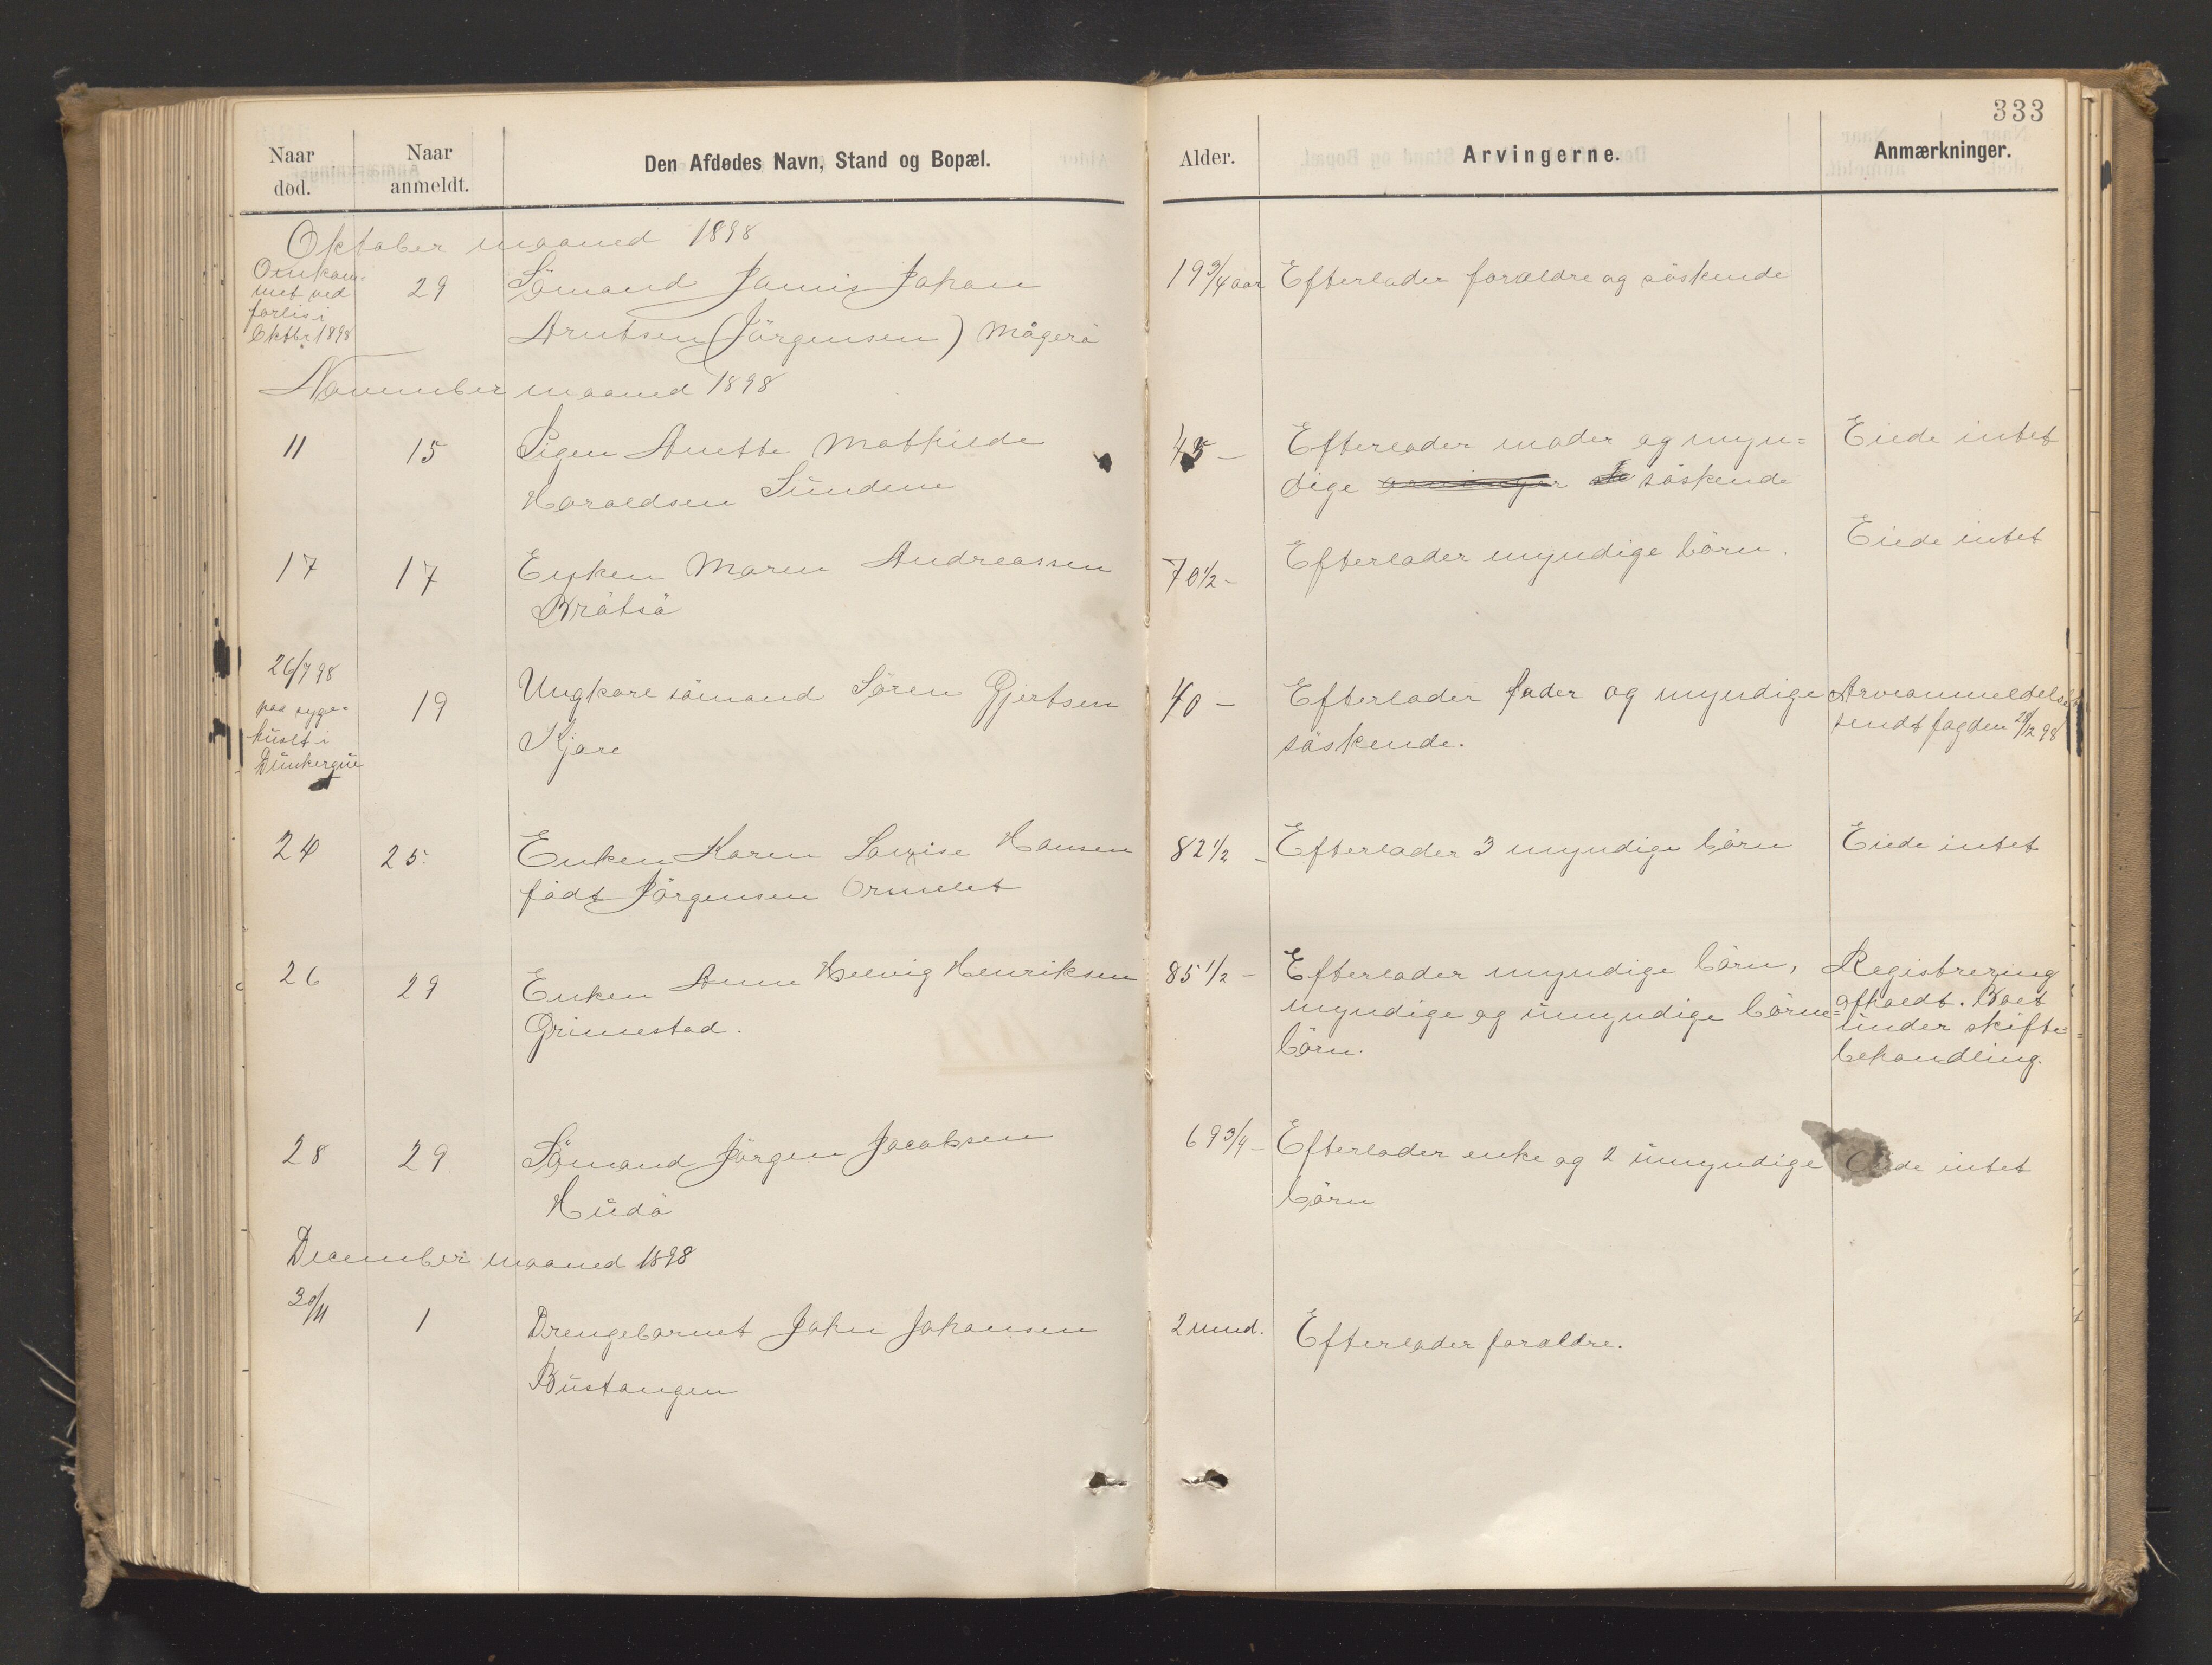 333
Naar død.
Naar anmeldt.
Den Afdødes Navn, Stand og Bopæl.
Alder.
Arvingerne.
Anmærkninger.
Oktober maaned 1898
Omkom-
met ved
forlis i
Oktbr 1898
29
Sömand Jamis Johan
Arntsen (Jörgensen) Mågerö
19 3/4 aar
Efterlader forældre og söskende
November maaned 1898
11
15
Pigen Anette Mathilde
Haraldsen Sundene
45 –
Efterlader moder og myn=
dige söskende
Eiede intet
17
17
Enken Maren Andreassen
Bråtså
70 1/2 –
Efterlader myndige börn.
Eiede intet
26/7 98
paa syge-
huset i
Dünkerque
19
Ungkarl sömand Sören Gjertsen
Kjære
40 –
Efterlader fader og myndige
söskende.
Arveanmeldelse
sendt fogden 28/12 98
24
25
Enken Karen Lovise Hansen
födt Jörgensen Ormelet
82 1/2 –
Efterlader 3 myndige börn
Eiede intet
26
29
Enken Anne Helvig Henriksen
Grimestad.
85 1/2 –
Efterlader myndige börn,
myndige og umyndige börne=
börn.
Registrering
afholdt. Boet
under skifte=
behandling.
28
29
Sömand Jörgen Jacobsen
Hudö
69 3/4 –
Efterlader enke og 2 umyndige
börn
Eiede intet
December maaned 1898
30/11
1
Drengebarnet John Johansen
Bustangen
2 mnd.
Efterlader forældre.